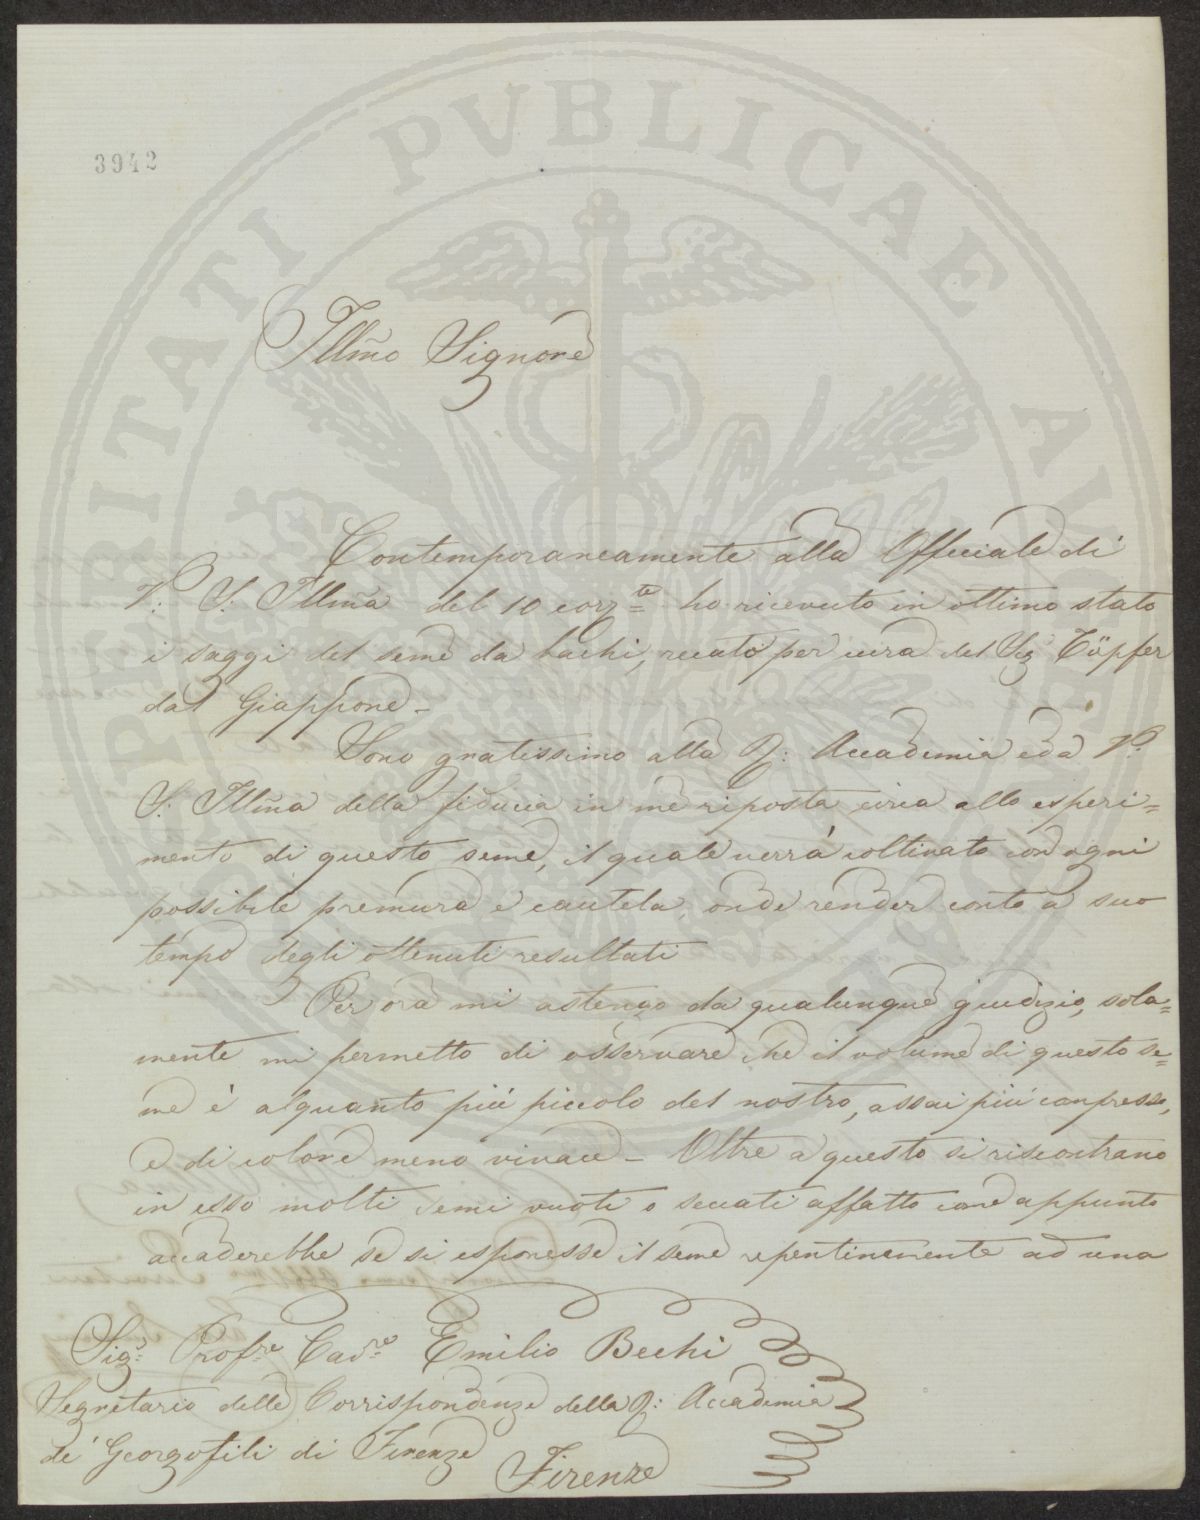 PROSPERITATI PUBLICAE AUGENDAE
3942
Illm̃o Signore
Contemporaneamente alla Officiale di
V: S. Illm̃a del 10 corr.te ho ricevuto in ottimo stato
i saggi del seme da bachi, recato per cura del Sig Töpfer
dal Giappone –
Sono gratissimo alla R: Accademia ed a V:
S: Illm̃a della fiducia in me riposta circa allo esperi=
mento di questo seme, il quale verrà coltivato con ogni
possibile premura e cautela, onde render conto a suo
tempo degli ottenuti resultati
Per ora mi astengo da qualunque giudizio, sola=
mente mi permetto di osservare che il volume di questo se=
me è alquanto più piccolo del nostro, assai più compresso,
e di colore meno vivace – Oltre a questo si riscontrano
in esso molti semi vuoti o seccati affatto come appunto
accaderebbe se si esponesse il seme repentinemente ad una
Sig.r Prof.re Cav.re Emilio Bechi
Segretario delle Corrispondenze della R: Accademia
de' Georgofili di Firenze
Firenze